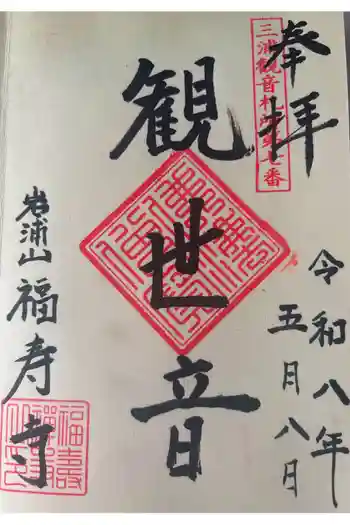 奉拝
三浦観音札所第七番
令和八年
五月八日
観世音
岩浦山福寿寺